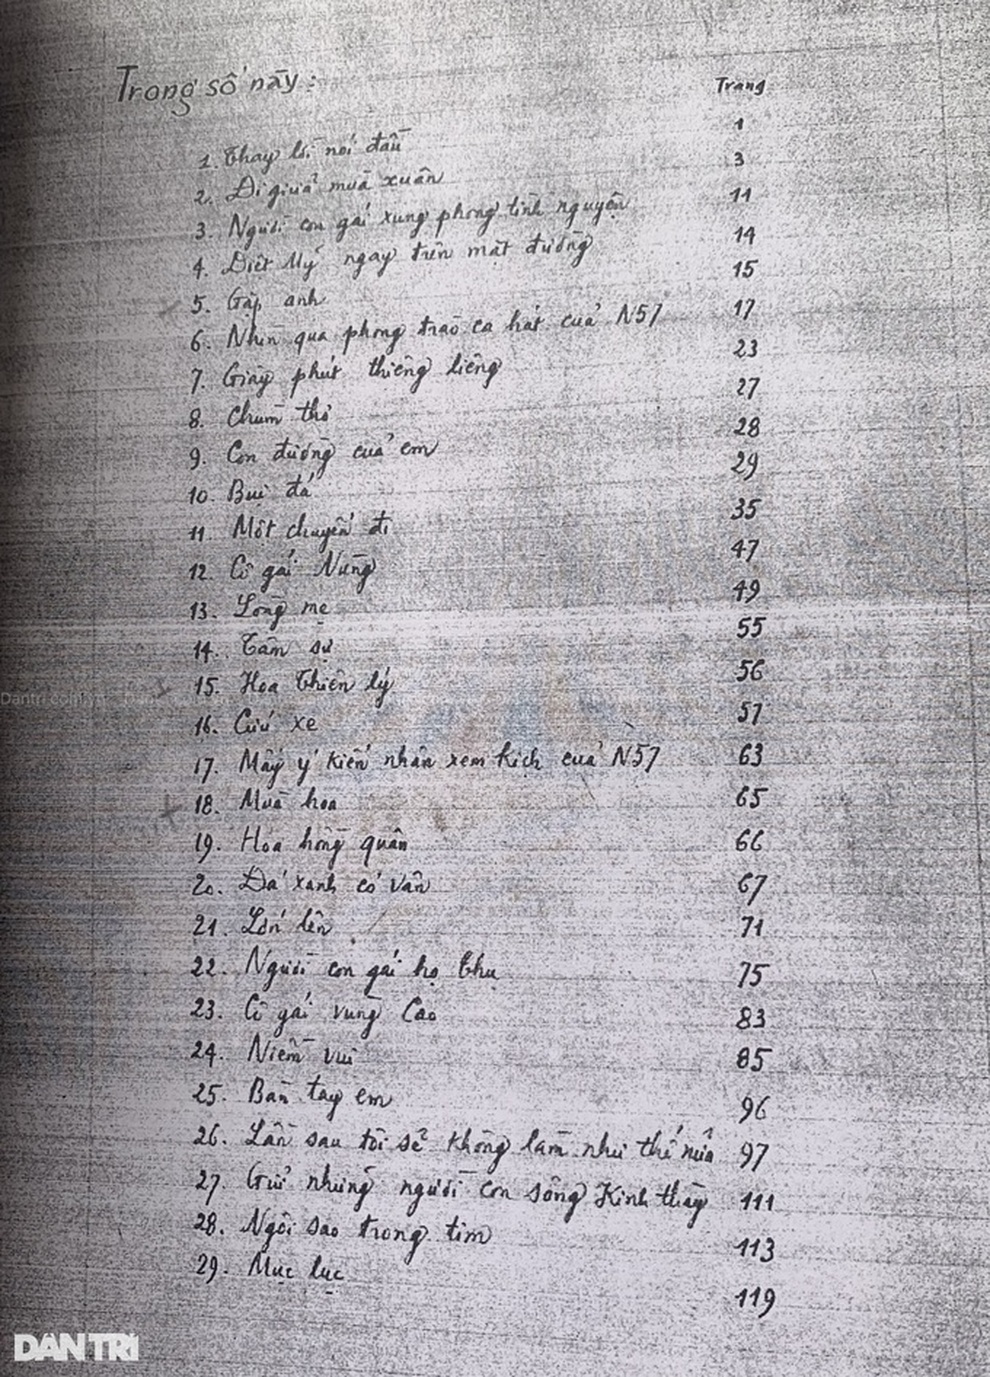 Trong số này: Trang
1. Thay lời nói đầu 1
2. Đi giữa mùa xuân 3
3. Người con gái xung phong tình nguyện 11
4. Diệt Mỹ ngay trên mặt đường 14
5. Gặp anh 15
6. Nhìn qua phong trào ca hát của N57 17
7. Giây phút thiêng liêng 23
8. Chùm thơ 27
9. Con đường của em 28
10. Bụi đá 29
11. Một chuyến đi 35
12. Cô gái Nùng 47
13. Lòng mẹ 49
14. Tâm sự 55
15. Hoa Thiên lý 56
16. Cứu xe 57
17. Mấy ý kiến nhân xem kịch của N57 63
18. Mùa hoa 65
19. Hoa hồng quân 66
20. Đá xanh cỏ vân 67
21. Lớn lên 71
22. Người con gái họ Thụ 75
23. Cô gái vùng Cao 83
24. Niềm vui 85
25. Bàn tay em 96
26. Lần sau tôi sẽ không làm như thế nữa 97
27. Gửi những người con sông Kinh thầy 111
28. Ngôi sao trong tim 113
29. Mục lục 119
DÂN TRÍ